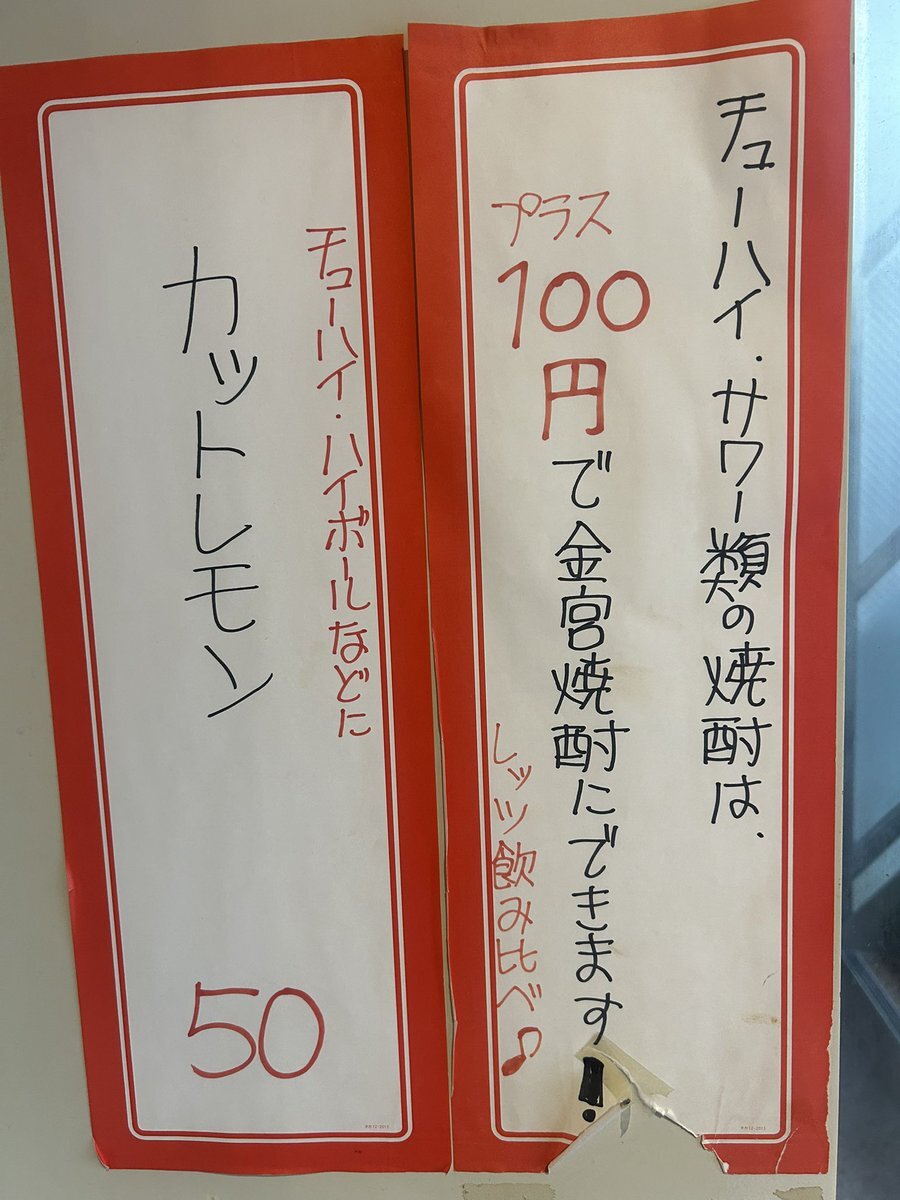 チューハイ・サワー類の焼酎は、
プラス
100
円で金宮焼酎にできます!
レッツ飲み比べ♪
チューハイ・ハイボールなどに
カットレモン
50